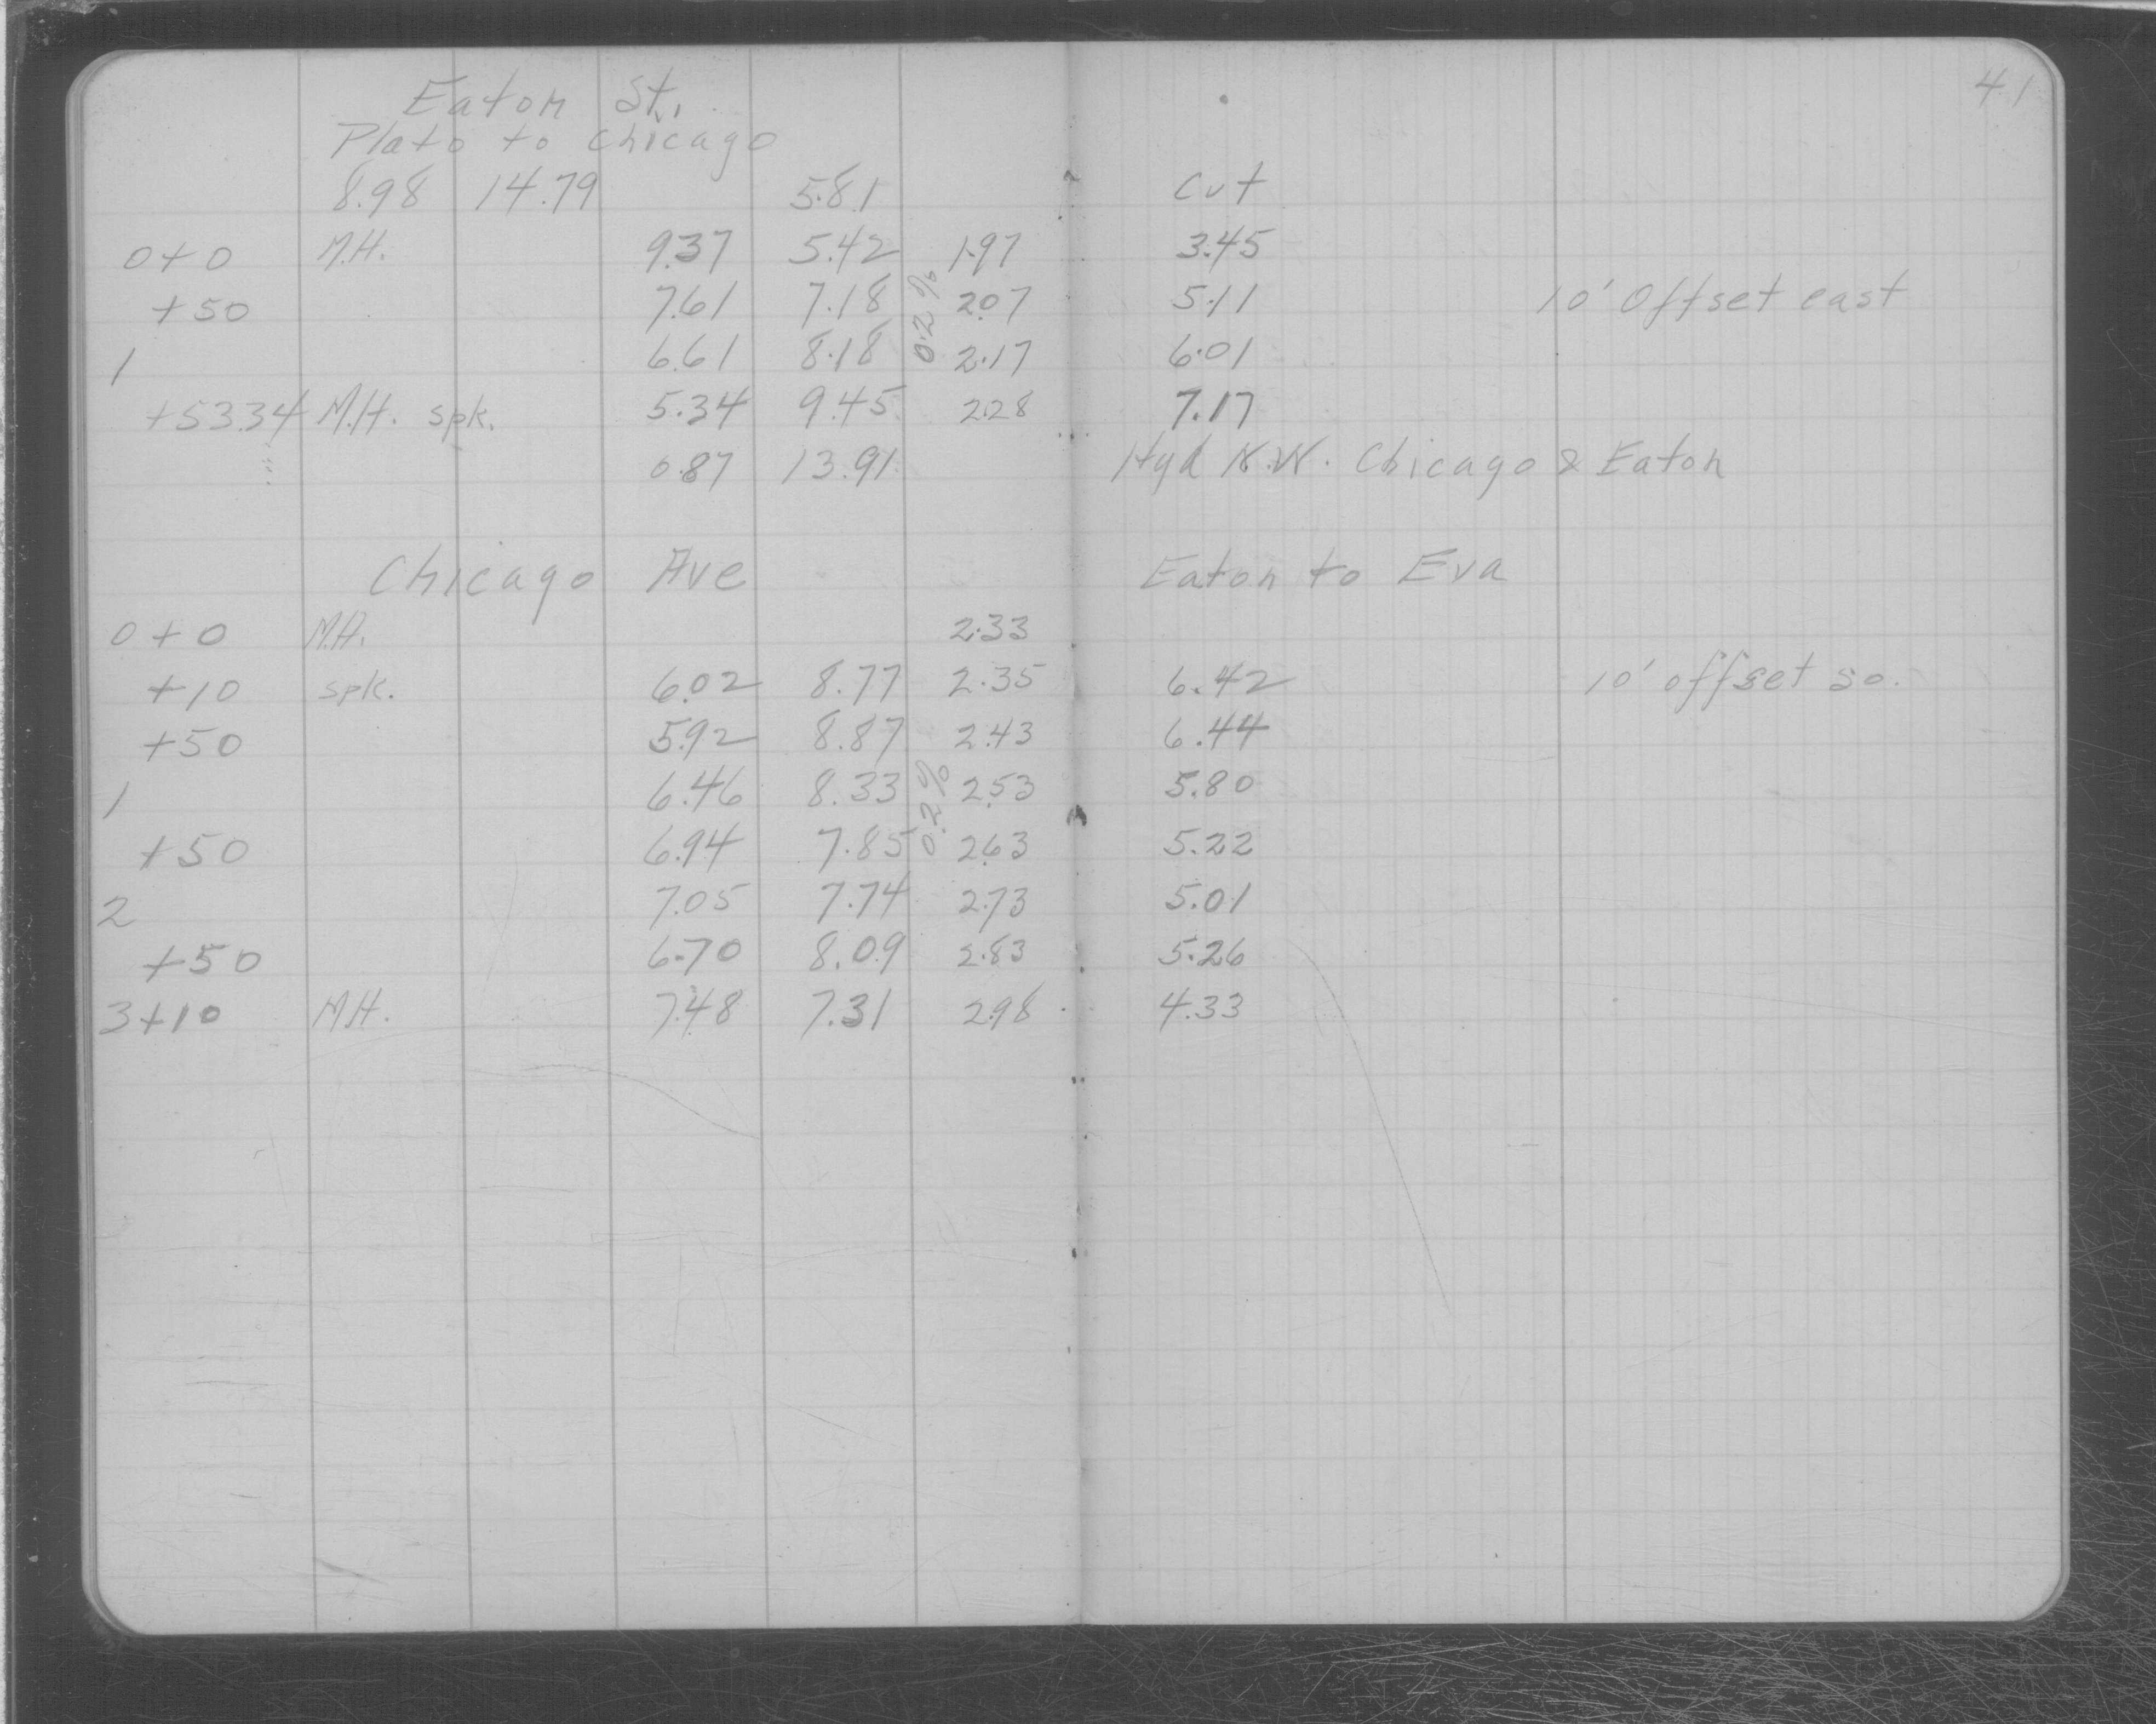 41
Eaton St.
Plato to Chicago
8.98 14.79 5.81 Cut
0+0 M.H. 9.37 5.42 1.97 3.45
+50 7.61 7.18 2.07 5.11 10' Offset east
0.2%
1 6.61 8.18 2.17 6.01
+53.34 M.H. spk. 5.34 9.45 2.28 7.17
0.87 13.91 Hyd N.W. Chicago & Eaton
Chicago Ave Eaton to Eva
0+0 M.H. 2.33
+10 spk. 6.02 8.77 2.35 6.42 10' offset so.
+50 5.92 8.87 2.43 6.44
1 6.46 8.33 2.53 5.80
0.2%
+50 6.94 7.85 2.63 5.22
2 7.05 7.74 2.73 5.01
+50 6.70 8.09 2.83 5.26
3+10 M.H. 7.48 7.31 2.98 4.33